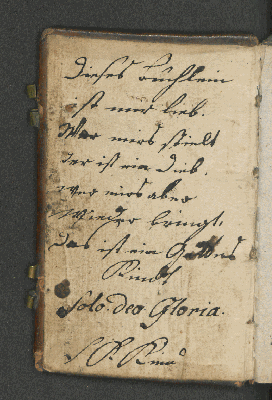 Dieses Buchlein
ist mir lieb.
Wer mirs stielt
der ist ein Dieb,
wer mirs aber
wieder bringt,
Das ist ein Gottes
Kindt
Solo. deo Gloria.